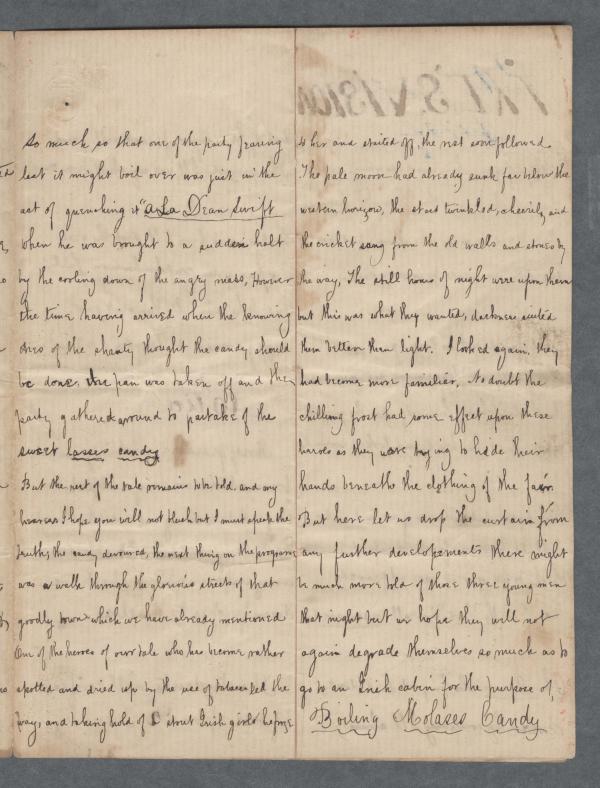 So much so that one of the party fearing
lest it might boil over was just in the
act of quenching it "a La Dean Swift
when he was brought to a sudden halt
by the cooling down of the angry mass, However
the time having arrived when the knowing
ones of the shanty thought the candy should
be done, the pan was taken off and the
party gathered around to partake of the
sweet lasses candy
But the rest of the tale remains to be told, and my
hearers I hope you will not blush but I must speak the
truth, the candy devoured, the next thing on the programe
was a walk through the glorious streets of that
goodly town which we have already mentioned
One of the heroes of our tale who has become rather
spotted and dried up by the use of tobacco led the
way, and taking hold of a stout Irish girl he
to her and started off, the rest soon followed
The pale moon had already sunk far below the
western horizow, the stars twinkled, cheerily, and
the cricket sang from the old walls and stones by
the way, The still hours of night were upon them
but this was what they wanted, darkness suited
them better than light. I looked again, they
had become more familiar, No doubt the
chilling frost had some effect upon these
heroes as they were trying to hide their
hands beneath the clothing of the fair.
But here let us drop the curtain from
any further developements there might
be much more told of those three young men
that night but we hope they will not
again degrade themselves so much as to
go to an Irish cabin for the purpose of,
Boiling Molases Candy